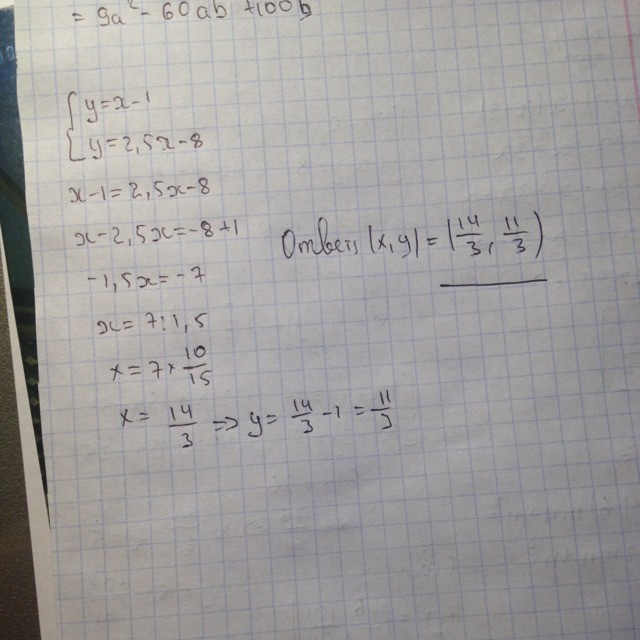 = 9a² - 60ab + 100b
{ y=x-1
{ y=2,5x-8
x-1=2,5x-8
x-2,5x=-8+1
-1,5x=-7
x=7:1,5
x=7*10/15
x=14/3 => y=14/3-1=11/3
Ответ: (x,y)=(14/3, 11/3)